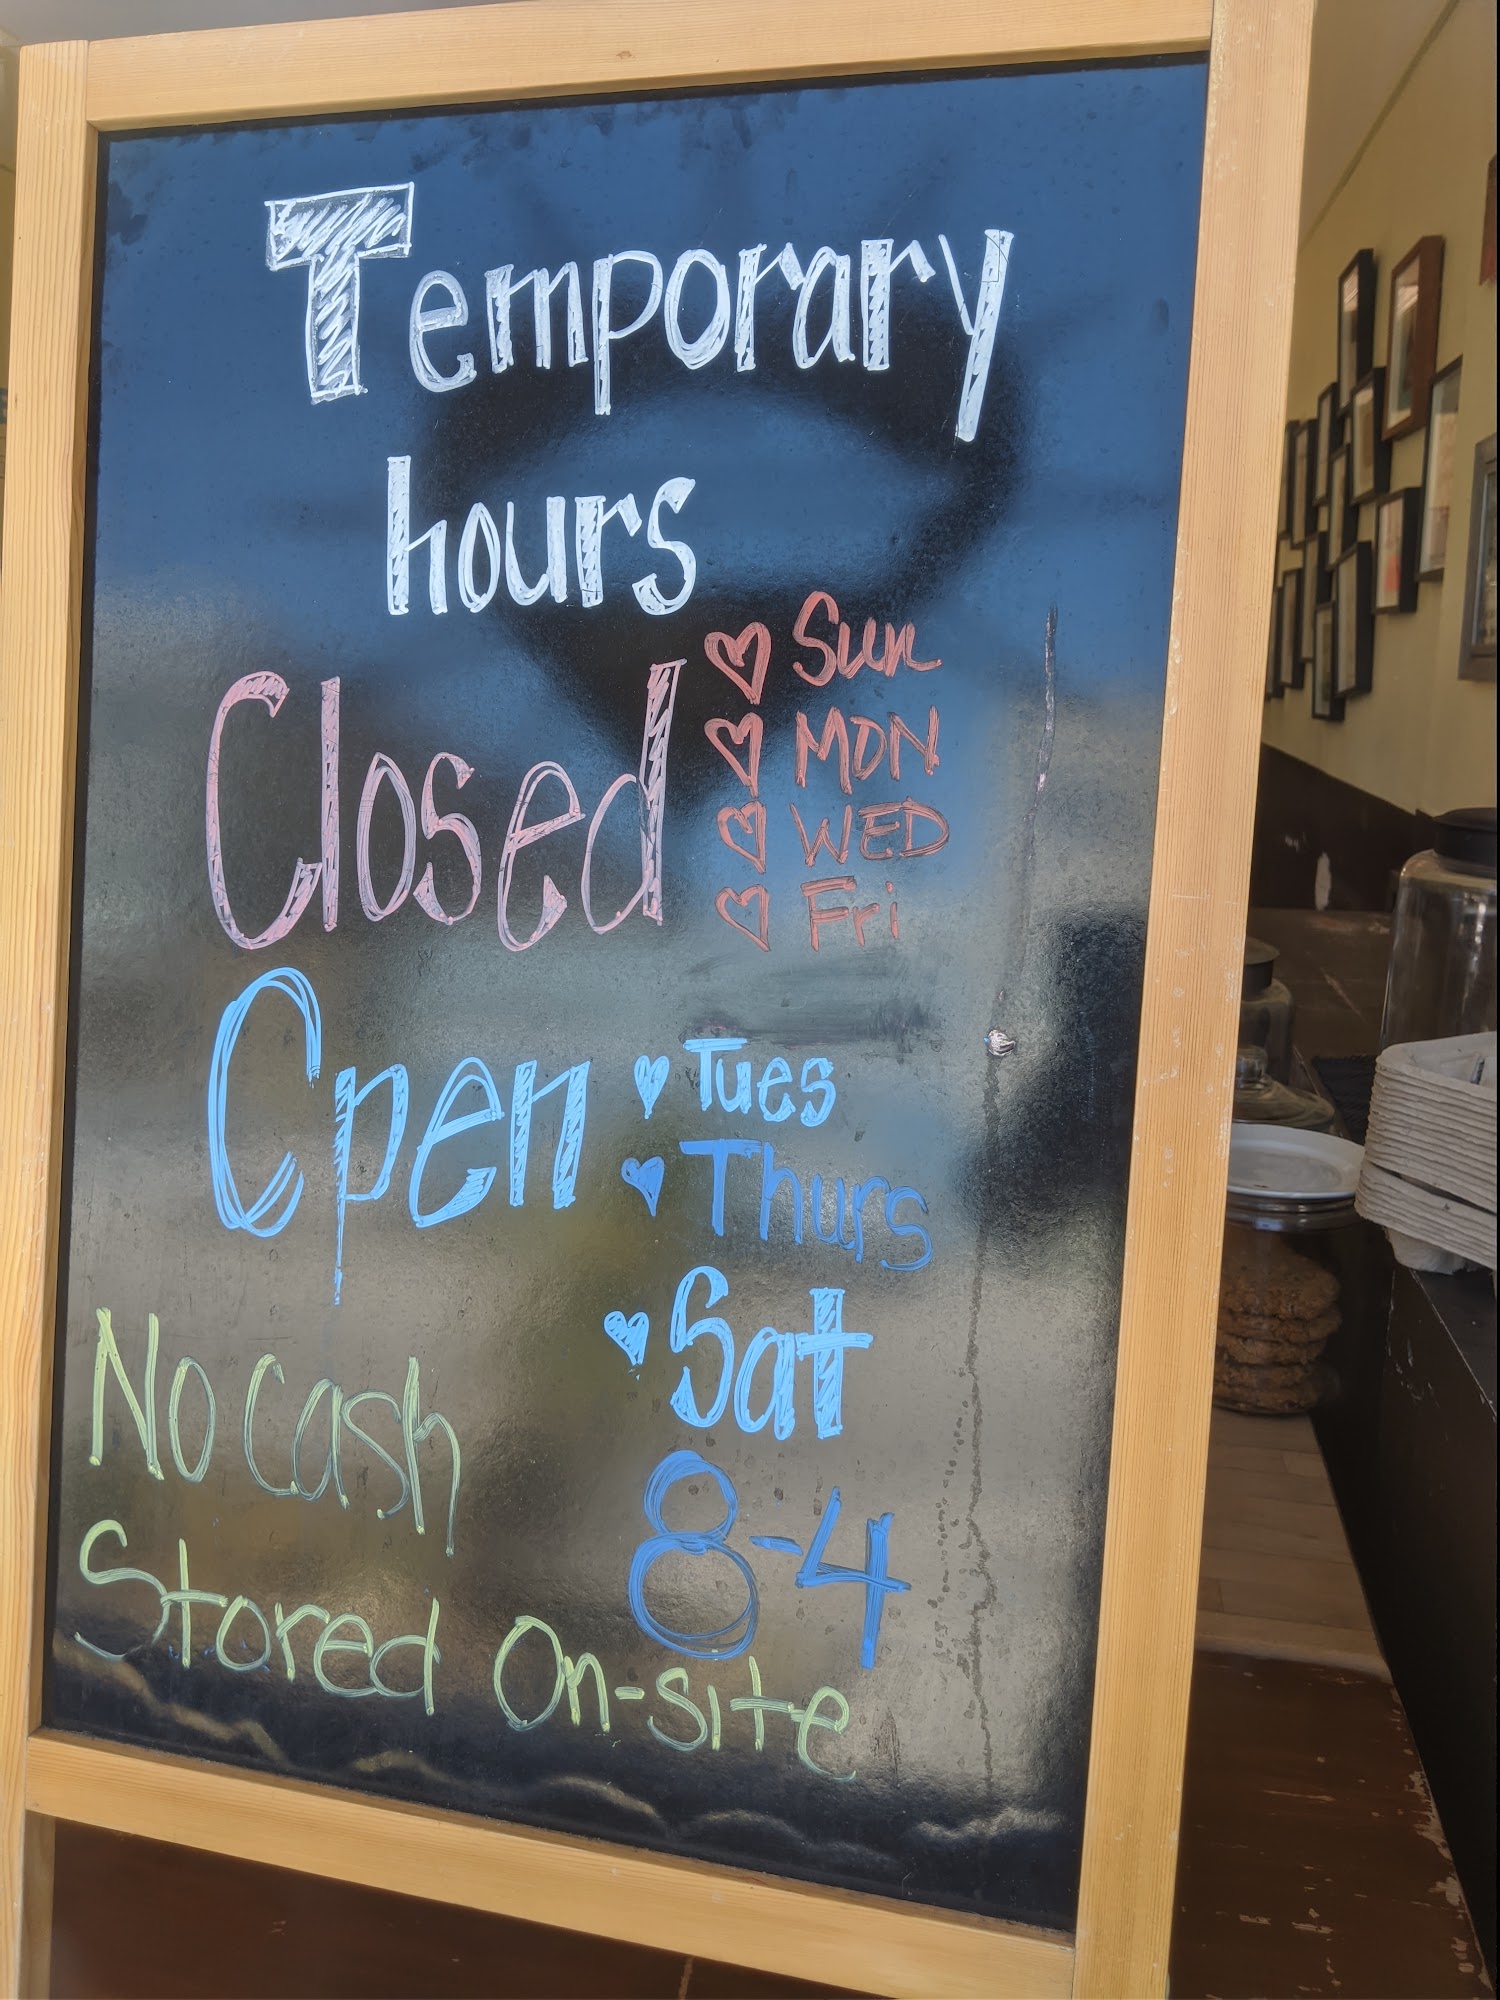 Temporary
hours
Closed
Sun
MON
WED
Fri
Open
Tues
Thurs
Sat
8-4
No Cash
Stored On-site